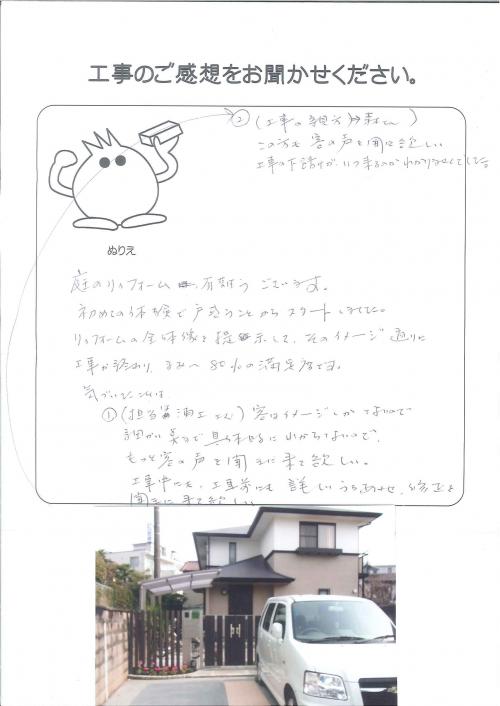 工事のご感想をお聞かせください。
② (工事の
この方も 客の声を聞いて欲しい
工事の下請けが、いつ来るのかわかりませんでした。
ぬりえ
庭のリフォーム 有難う ございます。
初めての体験で戸惑うことからスタートしました。
リフォームの全体像を提示して、そのイメージ通りに
工事が終わり、 80%の満足度です。
気づいたことは
① (担当 浦工 さん) 客はイメージしかないので
詳細が 具体的にわからないので、
もっと客の声を聞きに来て欲しい。
工事中にも、工事前にも 詳しいうちあわせ、修正を
聞きに来て欲しい